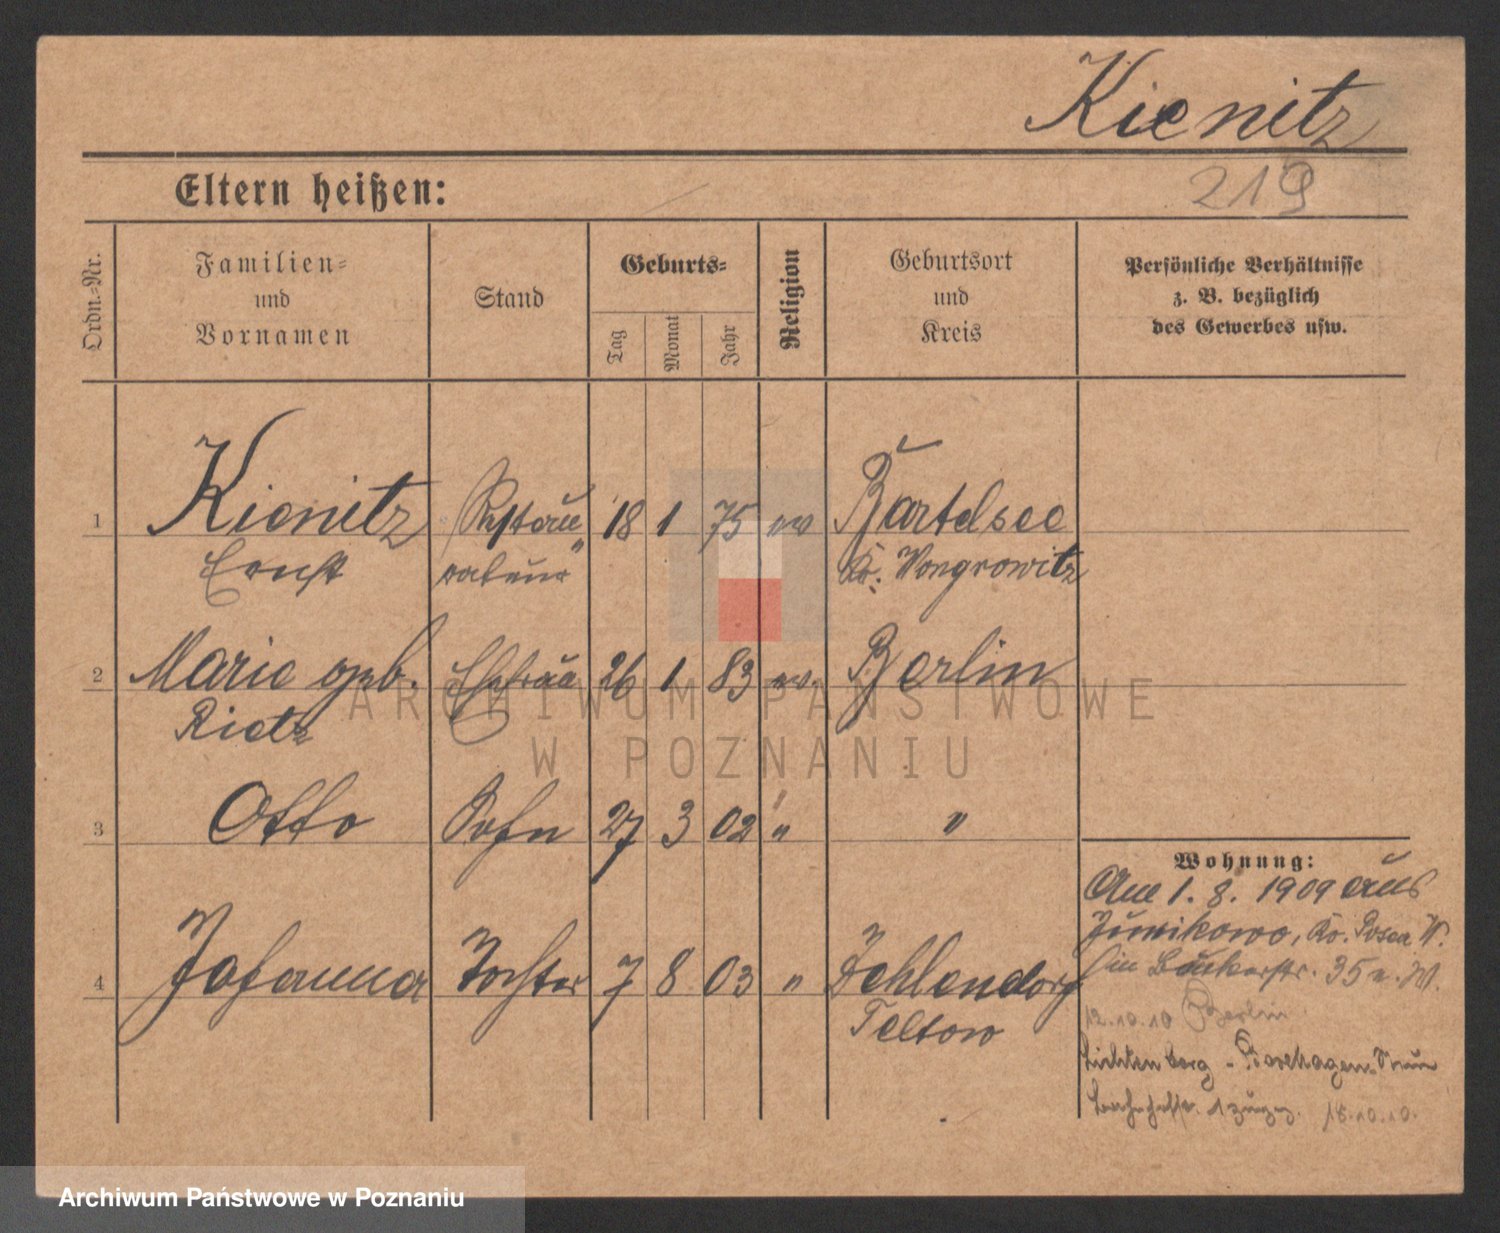 Kienitz
219
Eltern heißen:
Ordn.-Nr.
Familien-
und
Vornamen
Stand
Geburts-
Tag
Monat
Jahr
Religion
Geburtsort
und
Kreis
Persönliche Verhältnisse
z. B. bezüglich
des Gewerbes usw.
1 Kienitz Restau 18 1 75 ev Bartelsee
Ernst rateur Kr. Wongrowitz
2 Marie geb. Ehefrau 26 1 83 ev. Berlin
Rietz
3 Otto Sohn 27 3 02 " "
Wohnung:
Am 1. 8. 1909 aus
Junikowo, Kr. Posen W.
35
4 Johanna Tochter 7 8 03 " Zehlendorf
Teltow
12.10.10 Berlin
Lichtenberg - Boxhagen
1 18.10.10.
ARCHIWUM PAŃSTWOWE
W POZNANIU
Archiwum Państwowe w Poznaniu